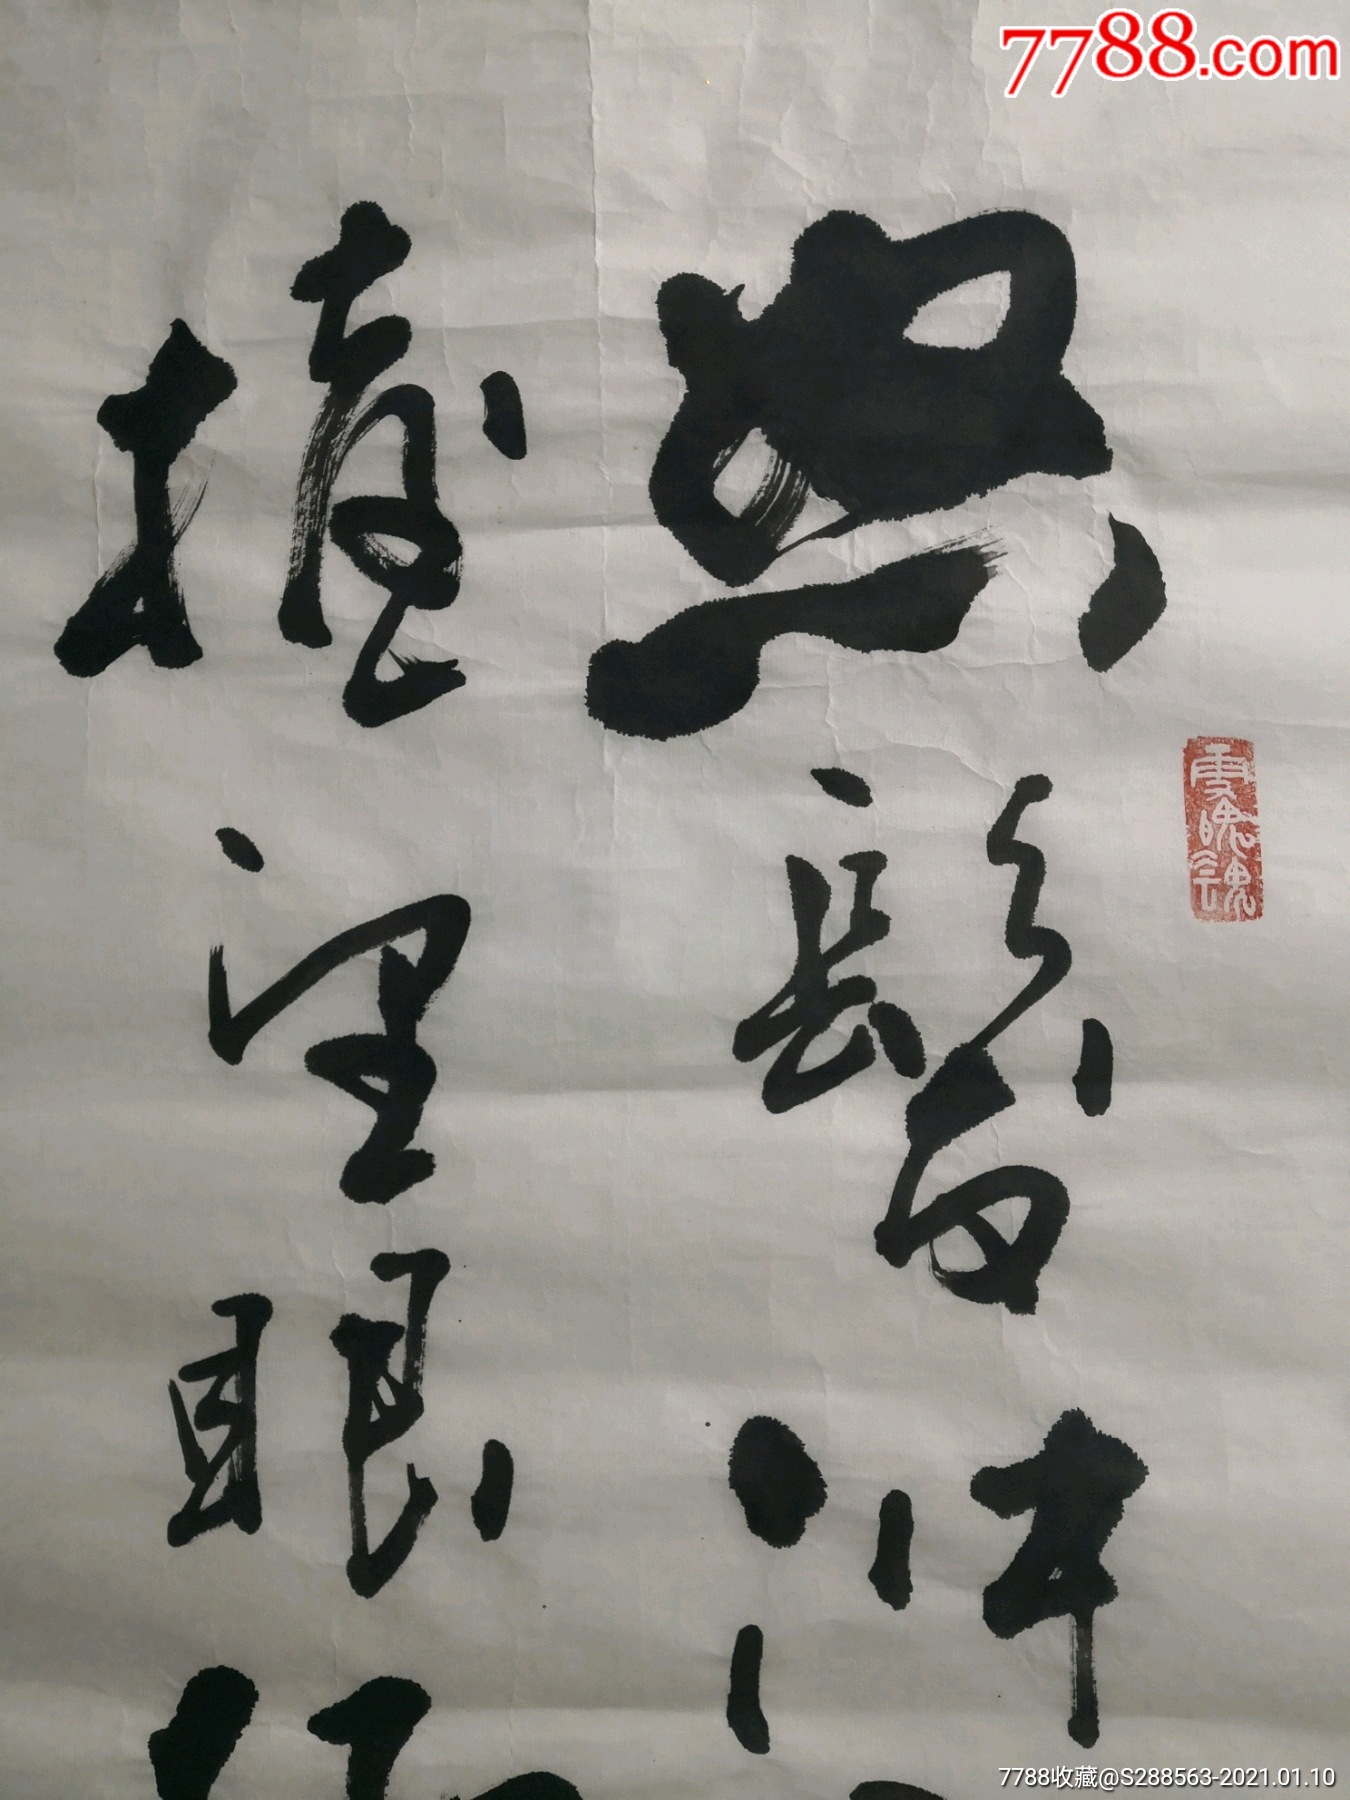 7788.com
怒髮沖
擡望眼
7788收藏@S288563-2021.01.10